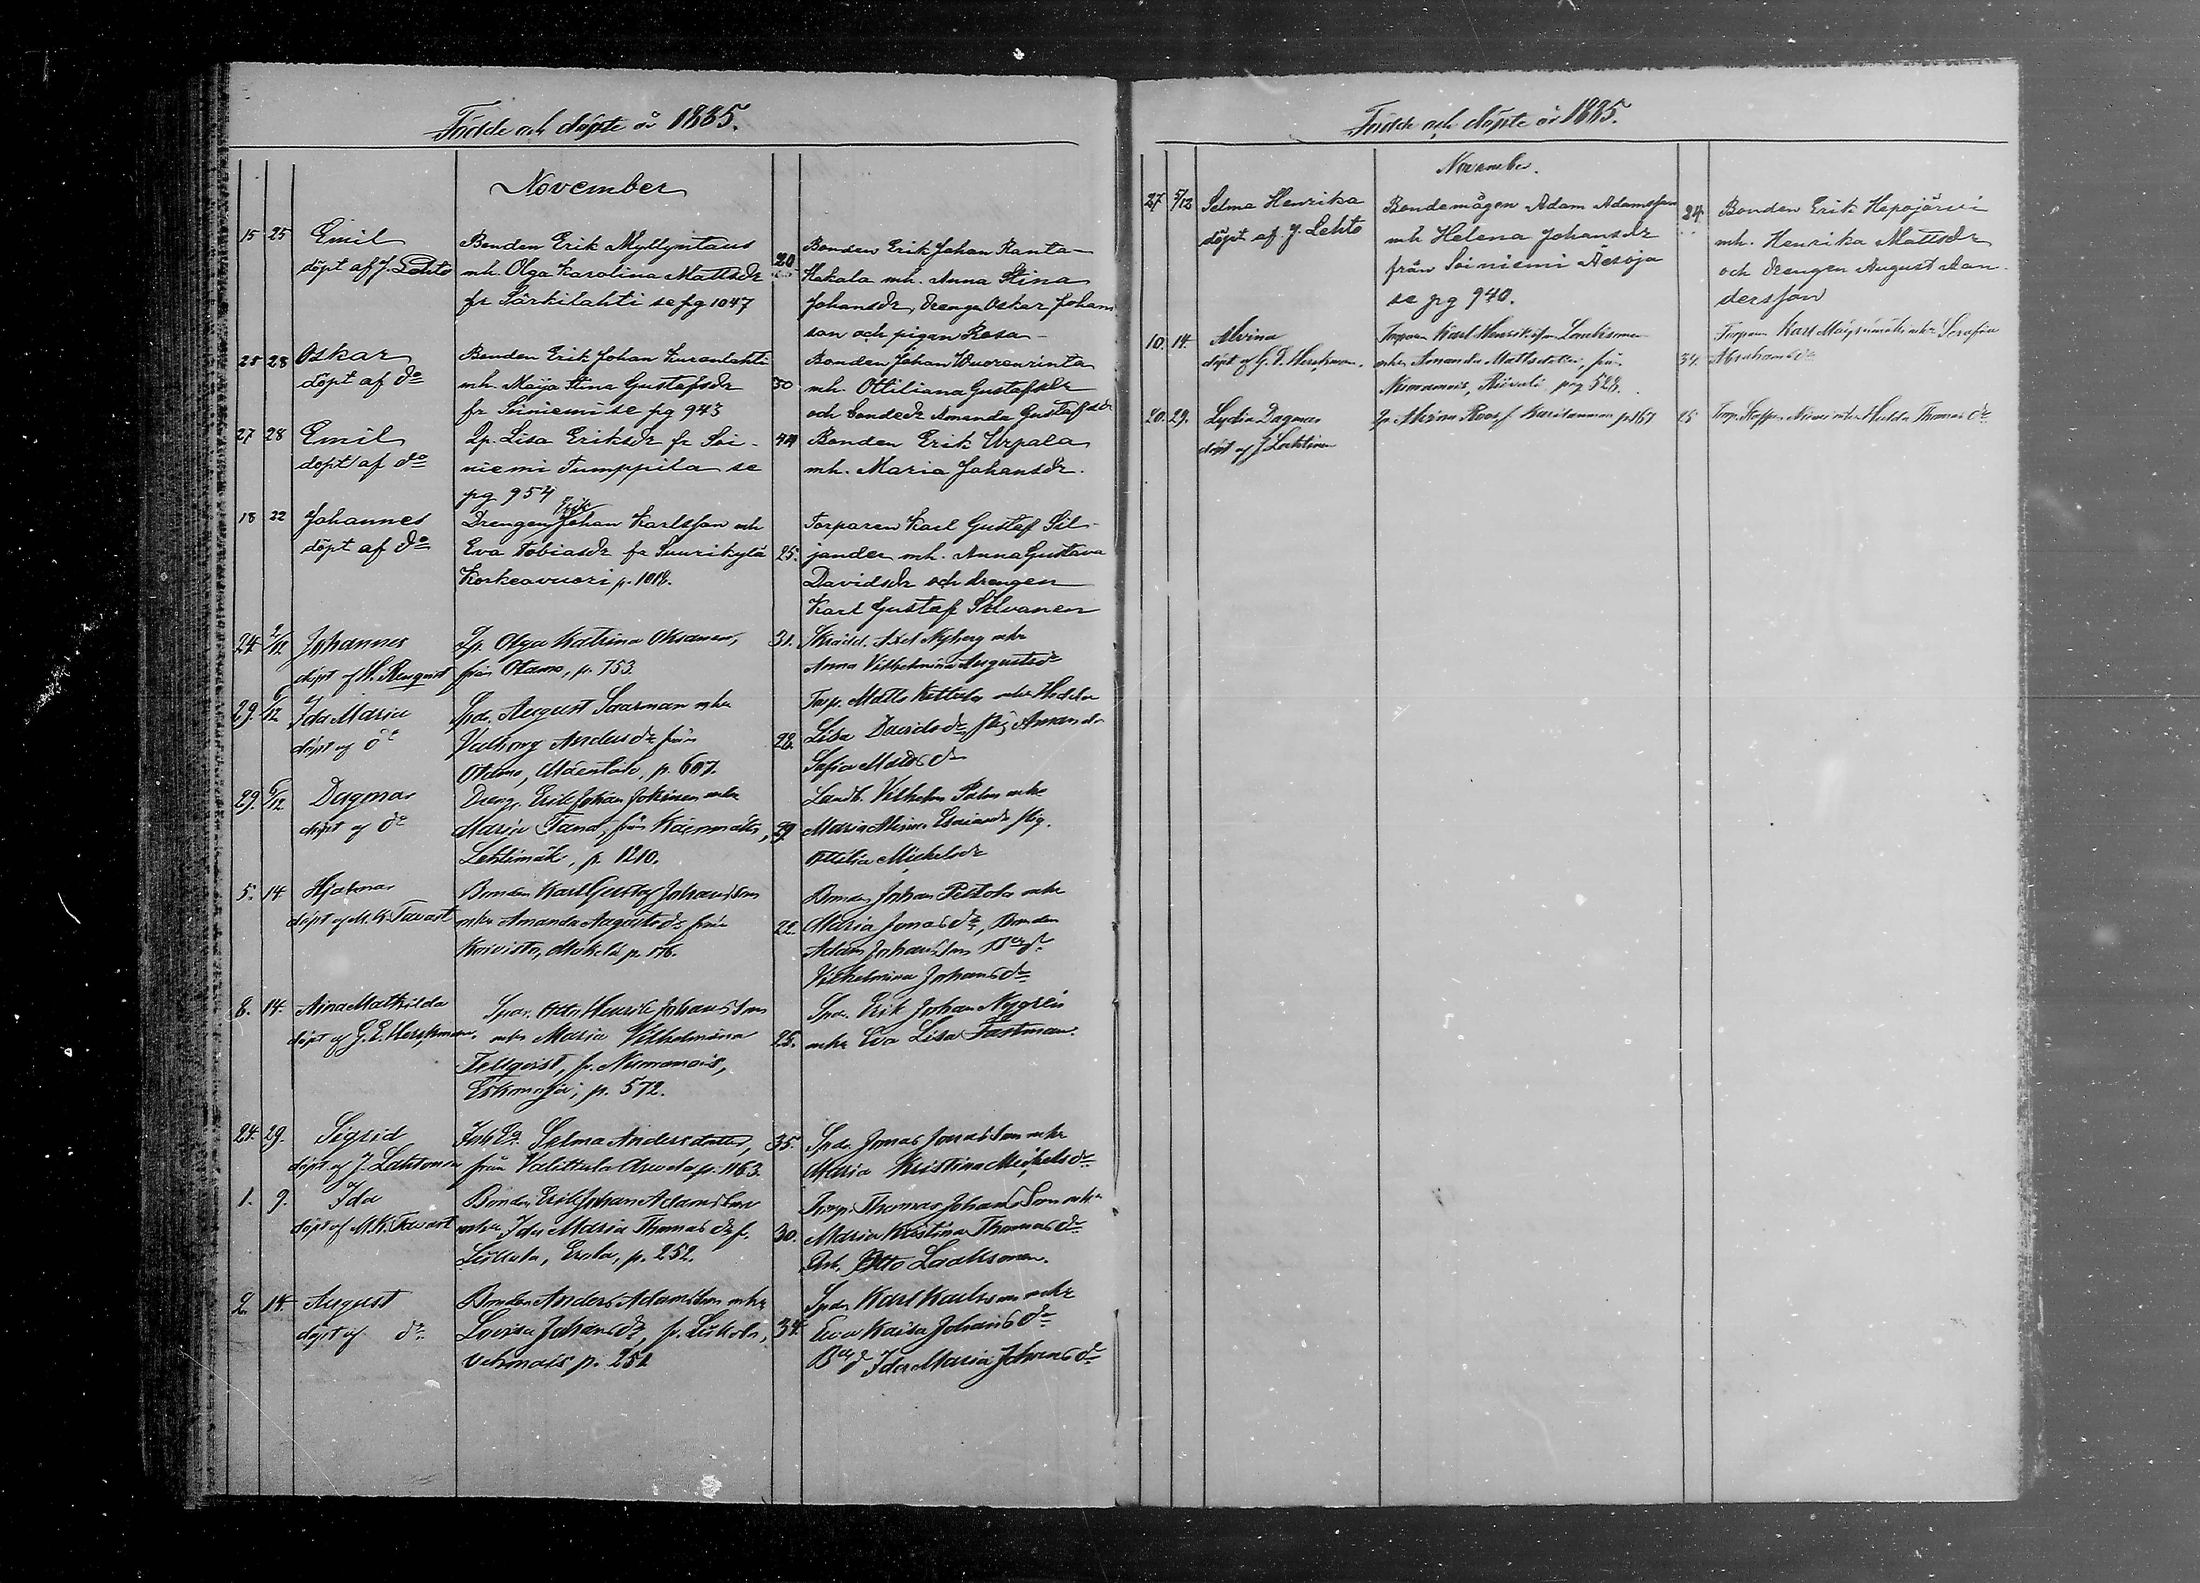 Födde och döpte år 1885.
November
15 25 Emil
döpt af J. Lehto
Bonden Erik Myllyntaus
mh. Olga Karolina Mattsdr
fr Särkilahti se pg 1047
20
Bonden Erik Johan Ranta-
Kakala mh. Anna Stina
Johansdr, Drengen Oskar Johans
son och pigan Rosa
25 28 Oskar
döpt af do
Bonden Erik Johan
mh. Maija Stina Gustafsdr
fr Soiniemi se pg 943
30
Bonden Johan Wuorenrinta
mh. Ottiliana Gustafsdr
och bondedr Amanda Gustafsdr
27 28 Emil
döpt af do
Qp. Lisa Eriksdr fr Soi-
niemi Tumppila se
pg 954
44
Bonden Erik Urpala
mh. Maria Johansdr.
18 22 Johannes
döpt af do
Drengen Erik Johan Karlsson mh
Eva Tobiasdr fr Suurikylä
Korkeavuori p. 1018.
25.
Torparen Karl Gustaf Sil-
jander mh. Anna Gustava
Davidsdr och drengen
Karl Gustaf Silvanen
24. 2/12 Johannes
döpt af W. Renqvist
Qp. Olga Katrina Oksanen,
från Otamo, p. 753.
31.
Skrädd. Axel Nyberg mhu
Anna Vilhelmina Augustsdr
29. 6/12 Ida Maria
döpt af do
Spde. August Saarman mhu
Valborg Andersdr från
Otamo, Mäentak, p. 607.
28.
Torp. Matts Kettula mhu Hedda
Lisa Davidsdr, flig Amanda
Sofia Mattsdr
29. 6/12 Dagmar
döpt af do
Dreng. Erik Johan Jokinen mhu
Maria Tand, från Kärmmäki,
Lehtimäki, p. 1210.
29
Landb. Vilhelm Palm mhu
Maria Alina Esaiasdr flig.
Ottilia Mickelsdr
5. 14 Hjalmar
döpt af M. K. Tavast
Bonden Karl Gustaf Johansson
mhu Amanda Augustsdr från
Koivisto, Mäkelä p. 176.
22.
Bonden Johan Peltola mhu
Maria Jonasdr, Bonden
Adam Johansson
Vilhelmina Johansdr
8. 14. Aina Mathilda
döpt af G. E. Hersman.
Spde. Otto Henrik Johansson
mhu Maria Vilhelmina
Fellqvist, fr. Numanois,
Eskonoja, p. 572.
25.
Spde. Erik Johan Nygren
mhu Eva Lisa Fastman.
24. 29. Sigrid
döpt af J. Laksonen
Selma Andersdotter,
från Valitkula p. 1163.
35.
Spde Jonas Jonasson mhu
Maria Kristina Mickelsdr
1. 9. Ida
döpt af M. K. Tavast
Bonden Erik Johan Adamsson
mhu Ida Maria Thomasdr f.
Liikkala, Erola, p. 252.
30.
Torp. Thomas Johansson mhu
Maria Kristina Thomasdr
Otto Laaksonen.
2. 14. August
döpt af do
Bonden Anders Adamsson mhu
Lovisa Johansdr, fr. Liikkala,
Vehmais p. 251
34.
Spde Karl Karlsson mhu
Eva Kaisa Johansdr
Ida Maria Johansdr
Födde och döpte år 1885.
November.
27 5/12 Selma Henrika
döpt af J. Lehto
Bondemågen Adam Adamsson
mh Helena Johansdr
från Soiniemi Äesoja
se pg 940.
24.
Bonden Erik Hepojärvi
mh. Henrika Mattsdr
och drengen August An-
dersson
10. 14. Alvina
döpt af G. E. Hersman.
Torparen Karl Henriksson
mhu Amanda Mattsdotter, från
Numanois, pag 528.
34.
Torparen Karl mhu Serafia
Abrahamsdr
20. 29. Lydia Dagmar
döpt af J. Lahtinen
Qp Alvina Roos f. p. 167
25
Torp. Staffan Niemi mhu Hulda Thomasdr